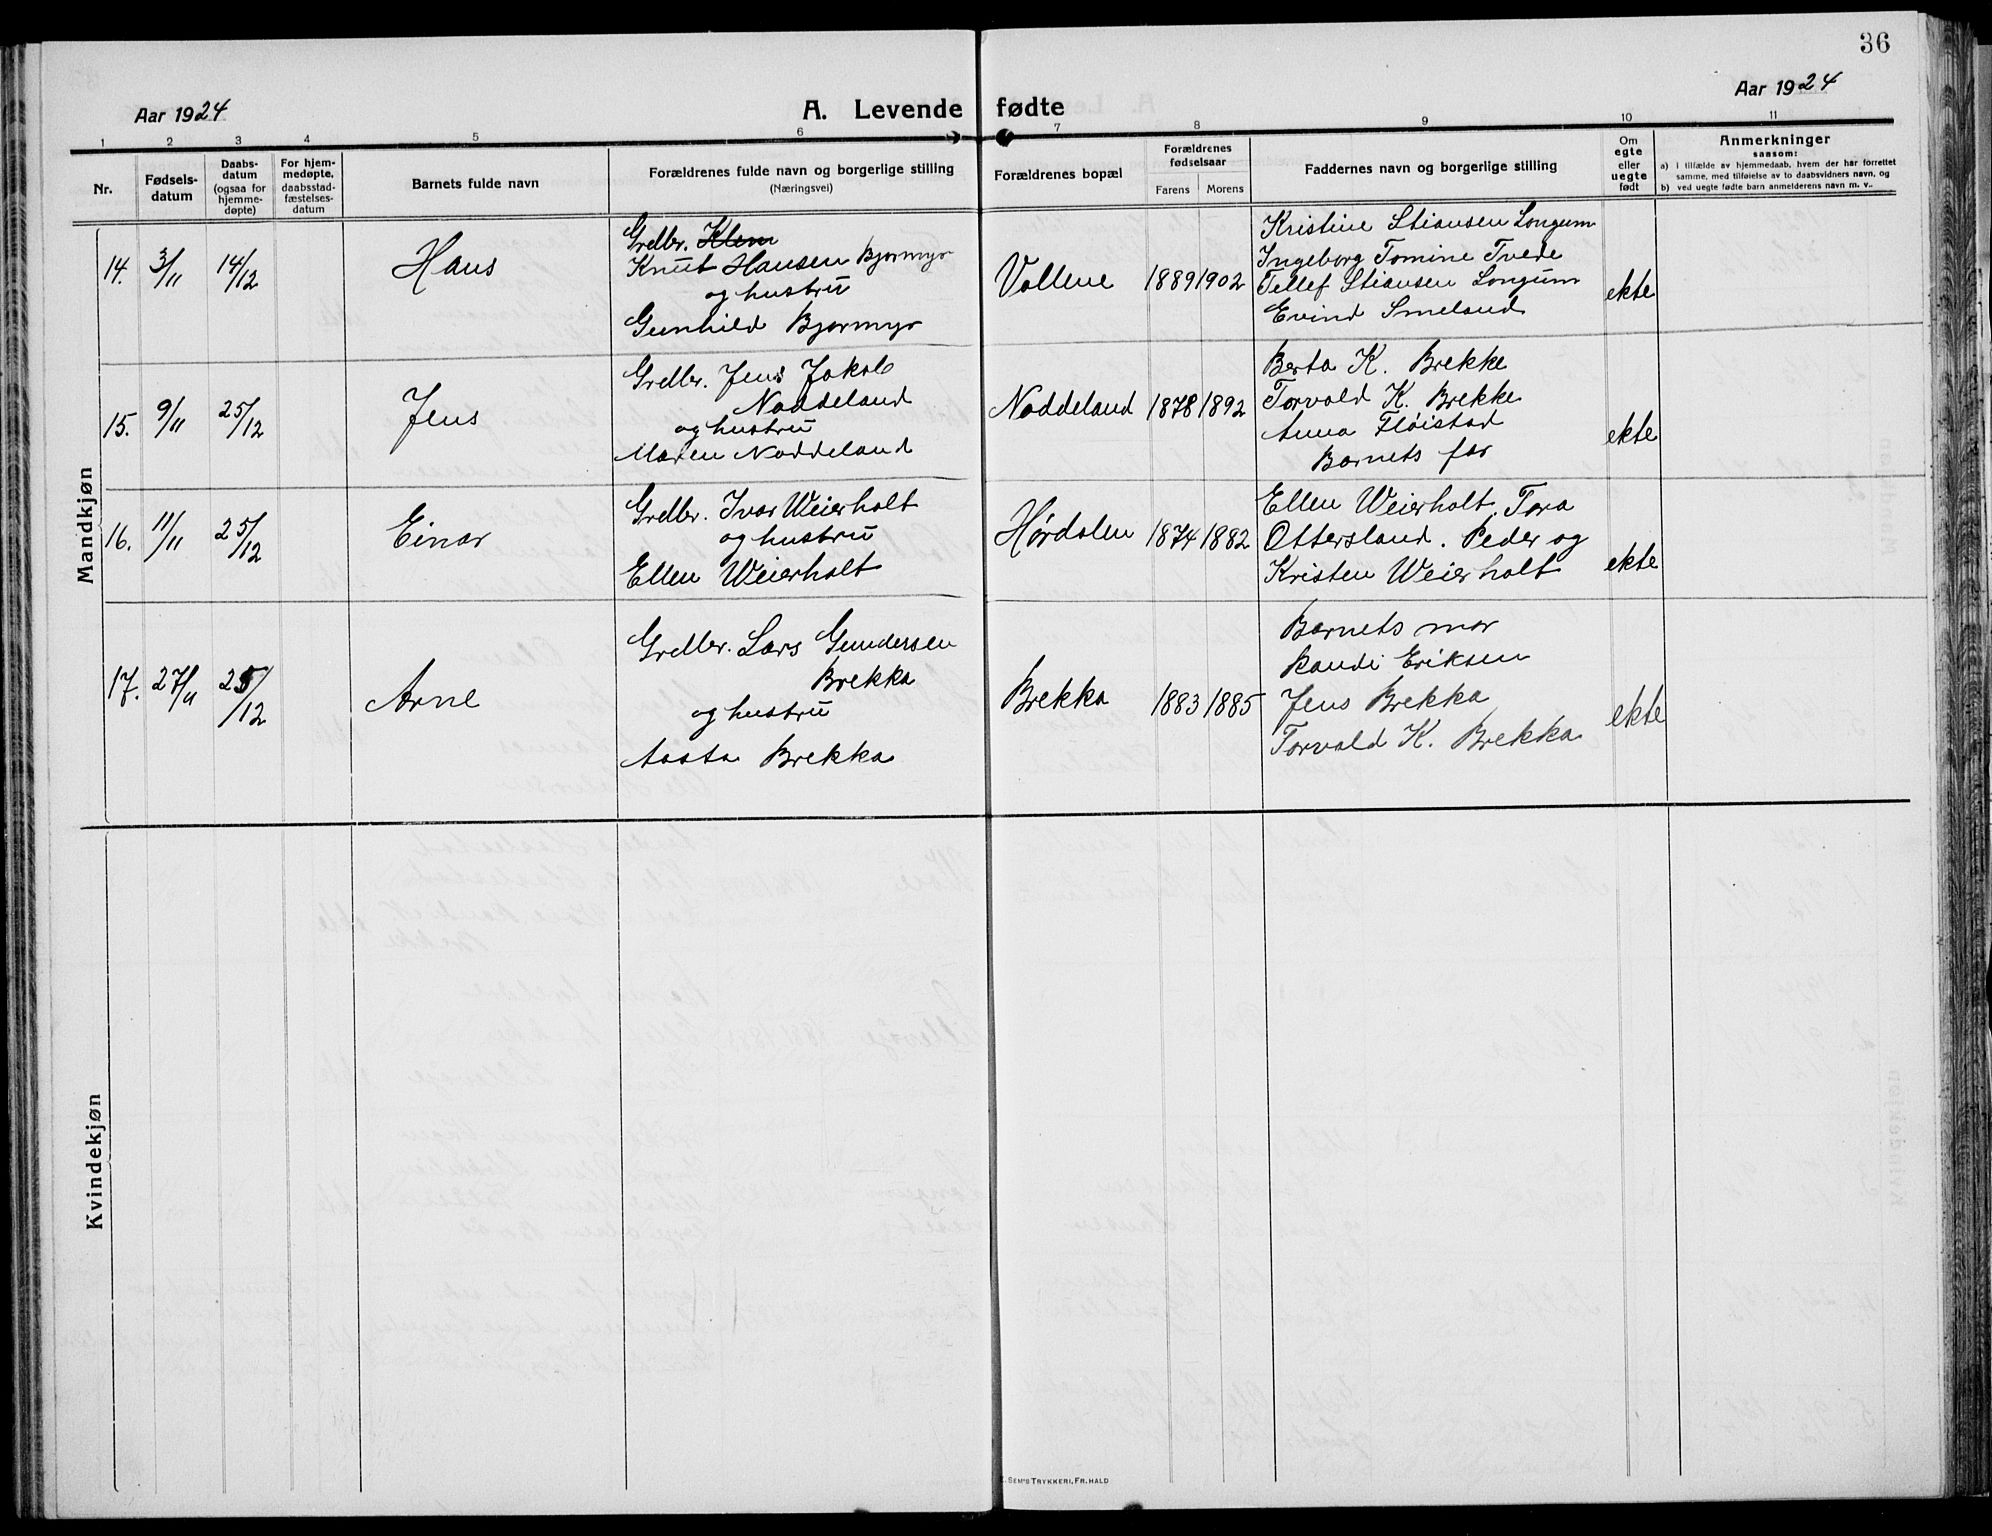 36
Aar 1924
A. Levende fødte
Aar 1924
1 2 3 4 5 6 7 8 9 10 11
Nr.
Fødsels-
datum
Daabs-
datum
(ogsaa for
hjemme-
døpte)
For hjem-
medøpte,
daabsstad-
fæstelses-
datum
Barnets fulde navn
Forældrenes fulde navn og borgerlige stilling
(Næringsvei)
Forældrenes bopæl
Forældrenes
fødselsaar
Farens Morens
Faddernes navn og borgerlige stilling
Om
egte
eller
uegte
født
Anmerkninger
saasom:
a) i tilfælde av hjemmedaab, hvem der har forrettet
samme, med tilføielse av to daabsvidners navn, og
b) ved uegte fødte barn anmelderens navn m. v..
Mandkjøn
14. 3/11 14/12 Hans
Grdbr. Klem
Knut Hansen Bjormyr
og hustru
Gunhild Bjormyr
Vollene 1889 1902
Kristine Stiansen Longum
Ingeborg Tomine Tvede
Tellef Stiansen Longum
Evind Smeland
ekte
15. 9/11 25/12 Jens
Grdbr. Jens Jakob
Noddeland
og hustru
Maren Noddeland
Noddeland 1878 1892
Berta K. Brekke
Torvald K. Brekke
Anna Fløistad
Barnets far
ekte
16. 11/11 25/12 Einar
Grdbr. Ivar Weierholt
og hustru
Ellen Weierholt
Hørdalen 1874 1882
Ellen Weierholt, Tora
Ottersland. Peder og
Kristen Weierholt
ekte
17. 27/11 25/12 Arne
Grdbr. Lars Gundersen
Brekka
og hustru
Aasta Brekka
Brekka 1883 1885
Barnets mor
Randi Eriksen
Jens Brekka
Torvald K. Brekka
ekte
Kvindekjøn
E. SEM'S TRYKKERI, FR.HALD